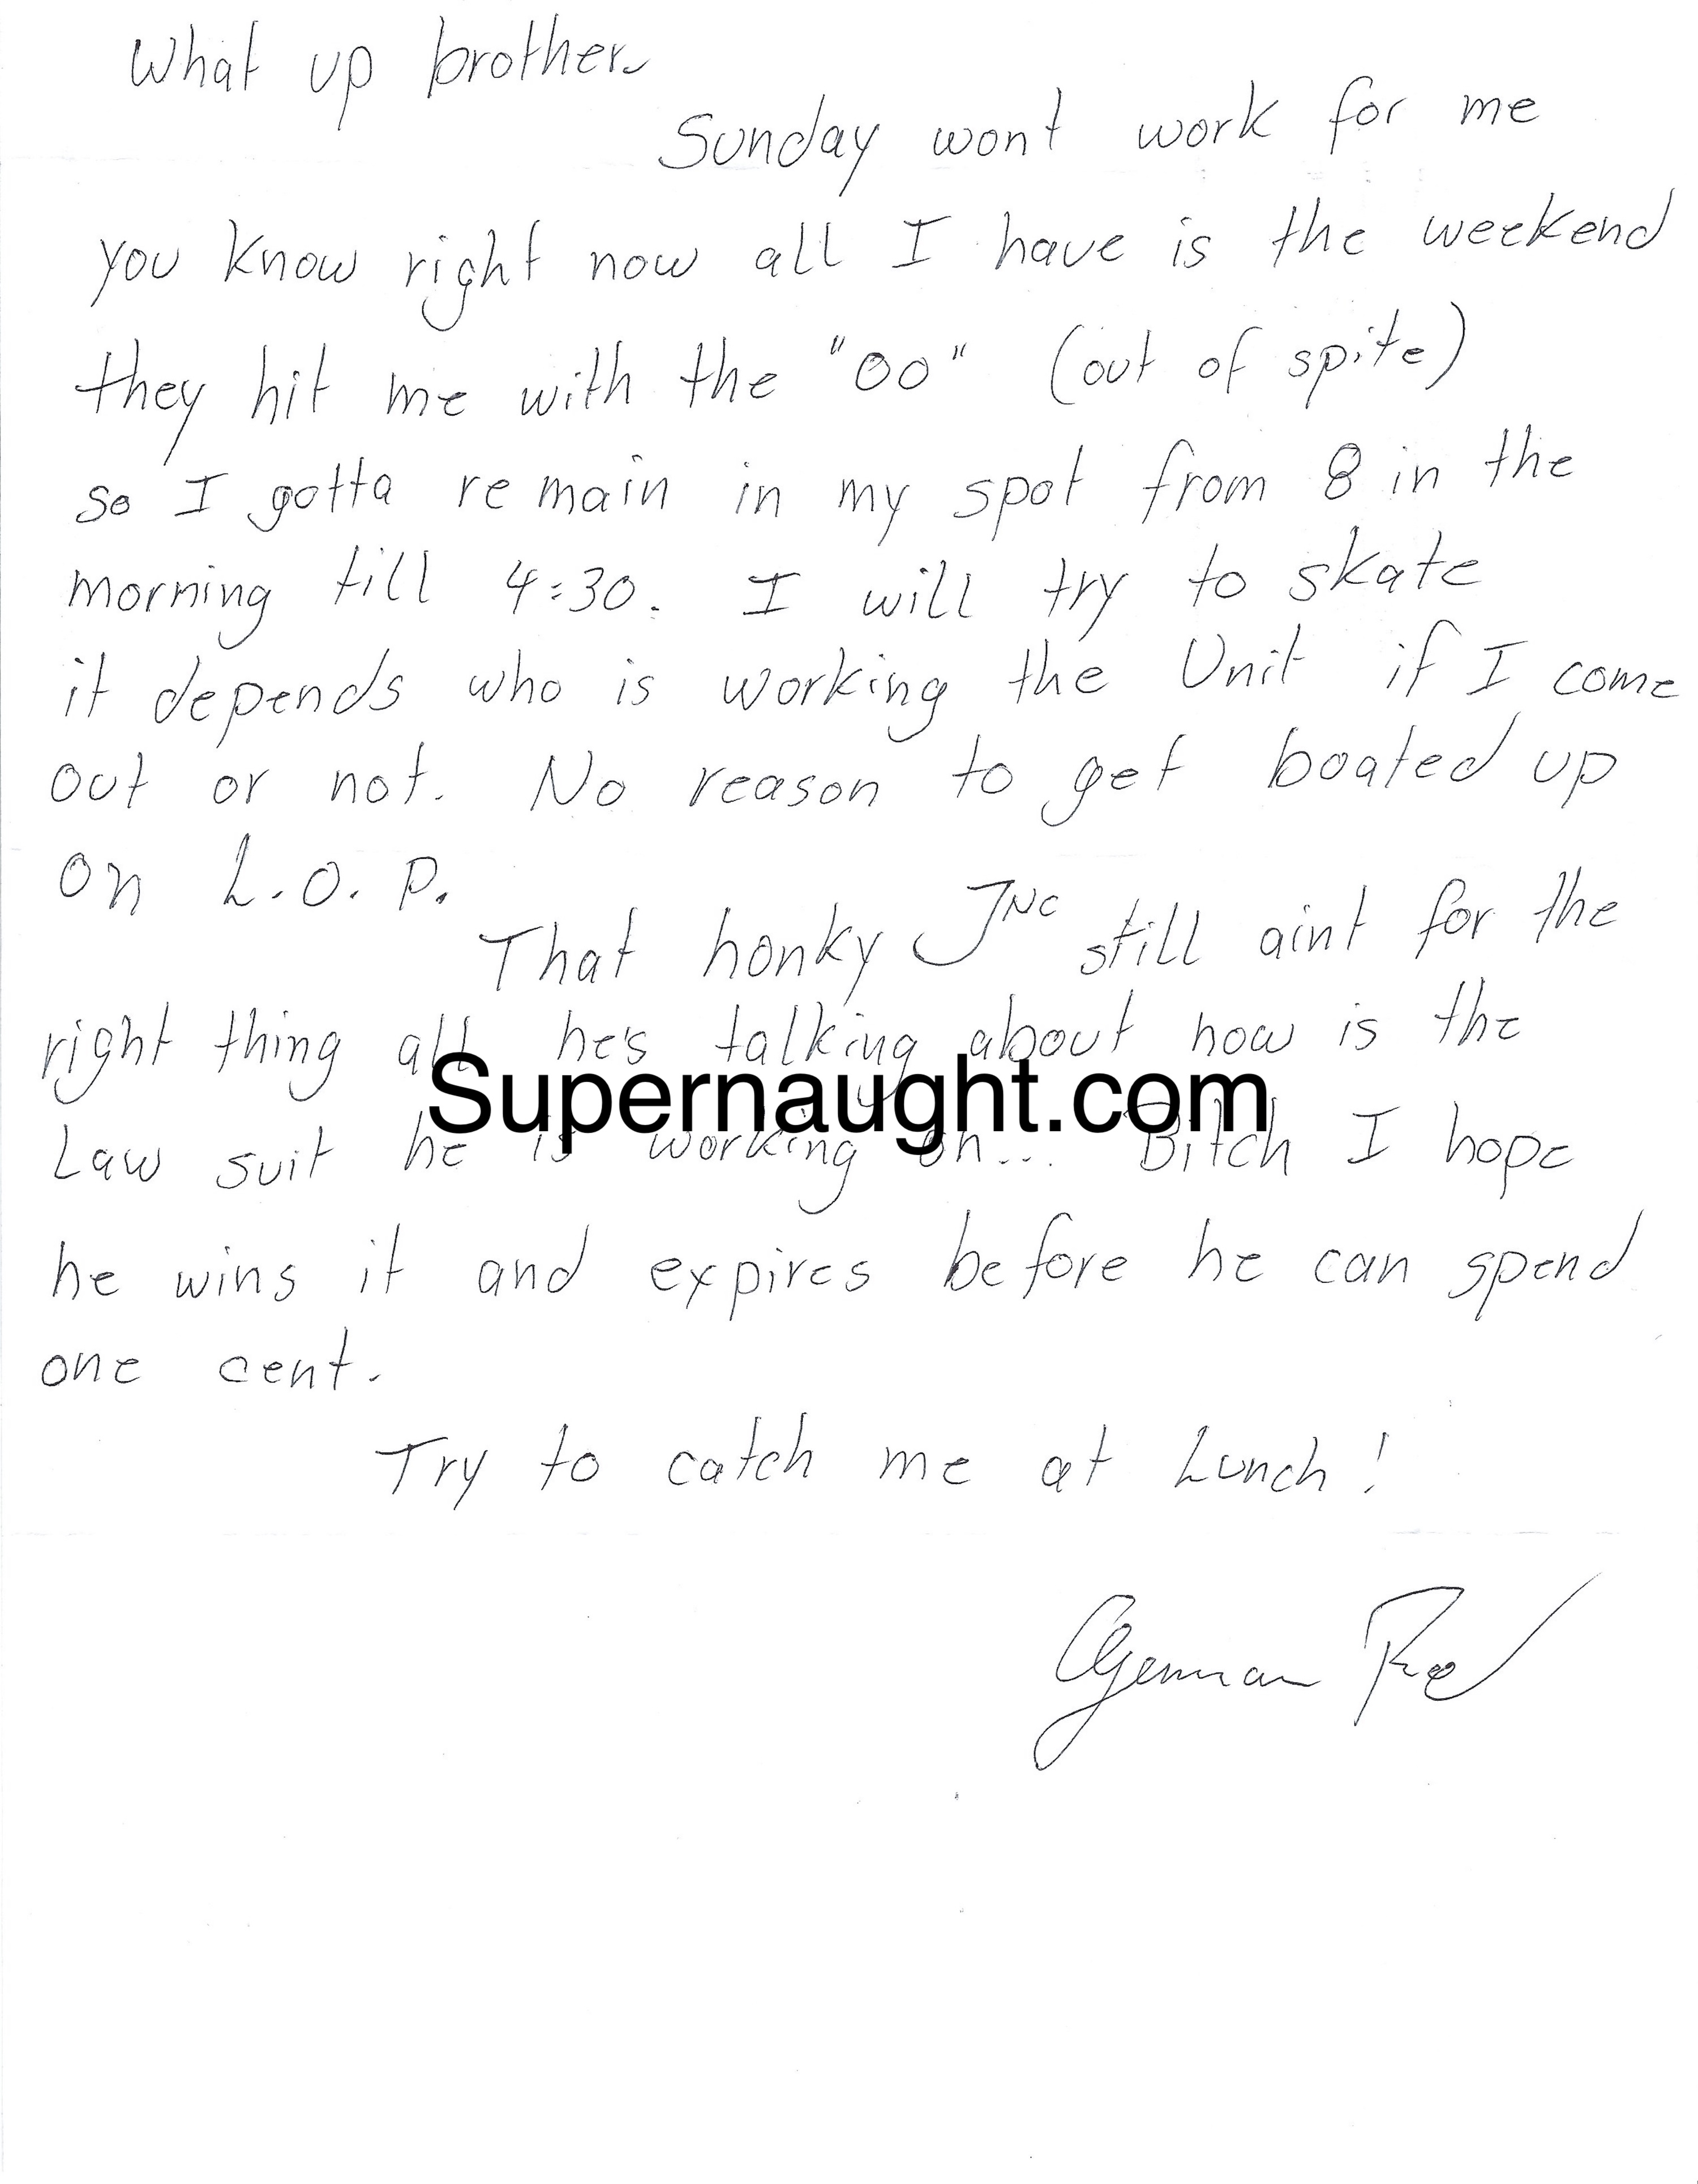 What up brother.
Sunday wont work for me
you know right now all I have is the weekend
they hit me with the "OO" (out of spite)
so I gotta remain in my spot from 8 in the
morning till 4:30. I will try to skate
it depends who is working the Unit if I come
out or not. No reason to get boated up
on L.O.P.
That honky JNC still aint for the
right thing all he's talking about now is the
Supernaught.com
Law suit he is working on... Bitch I hope
he wins it and expires before he can spend
one cent.
Try to catch me at Lunch!
German Red